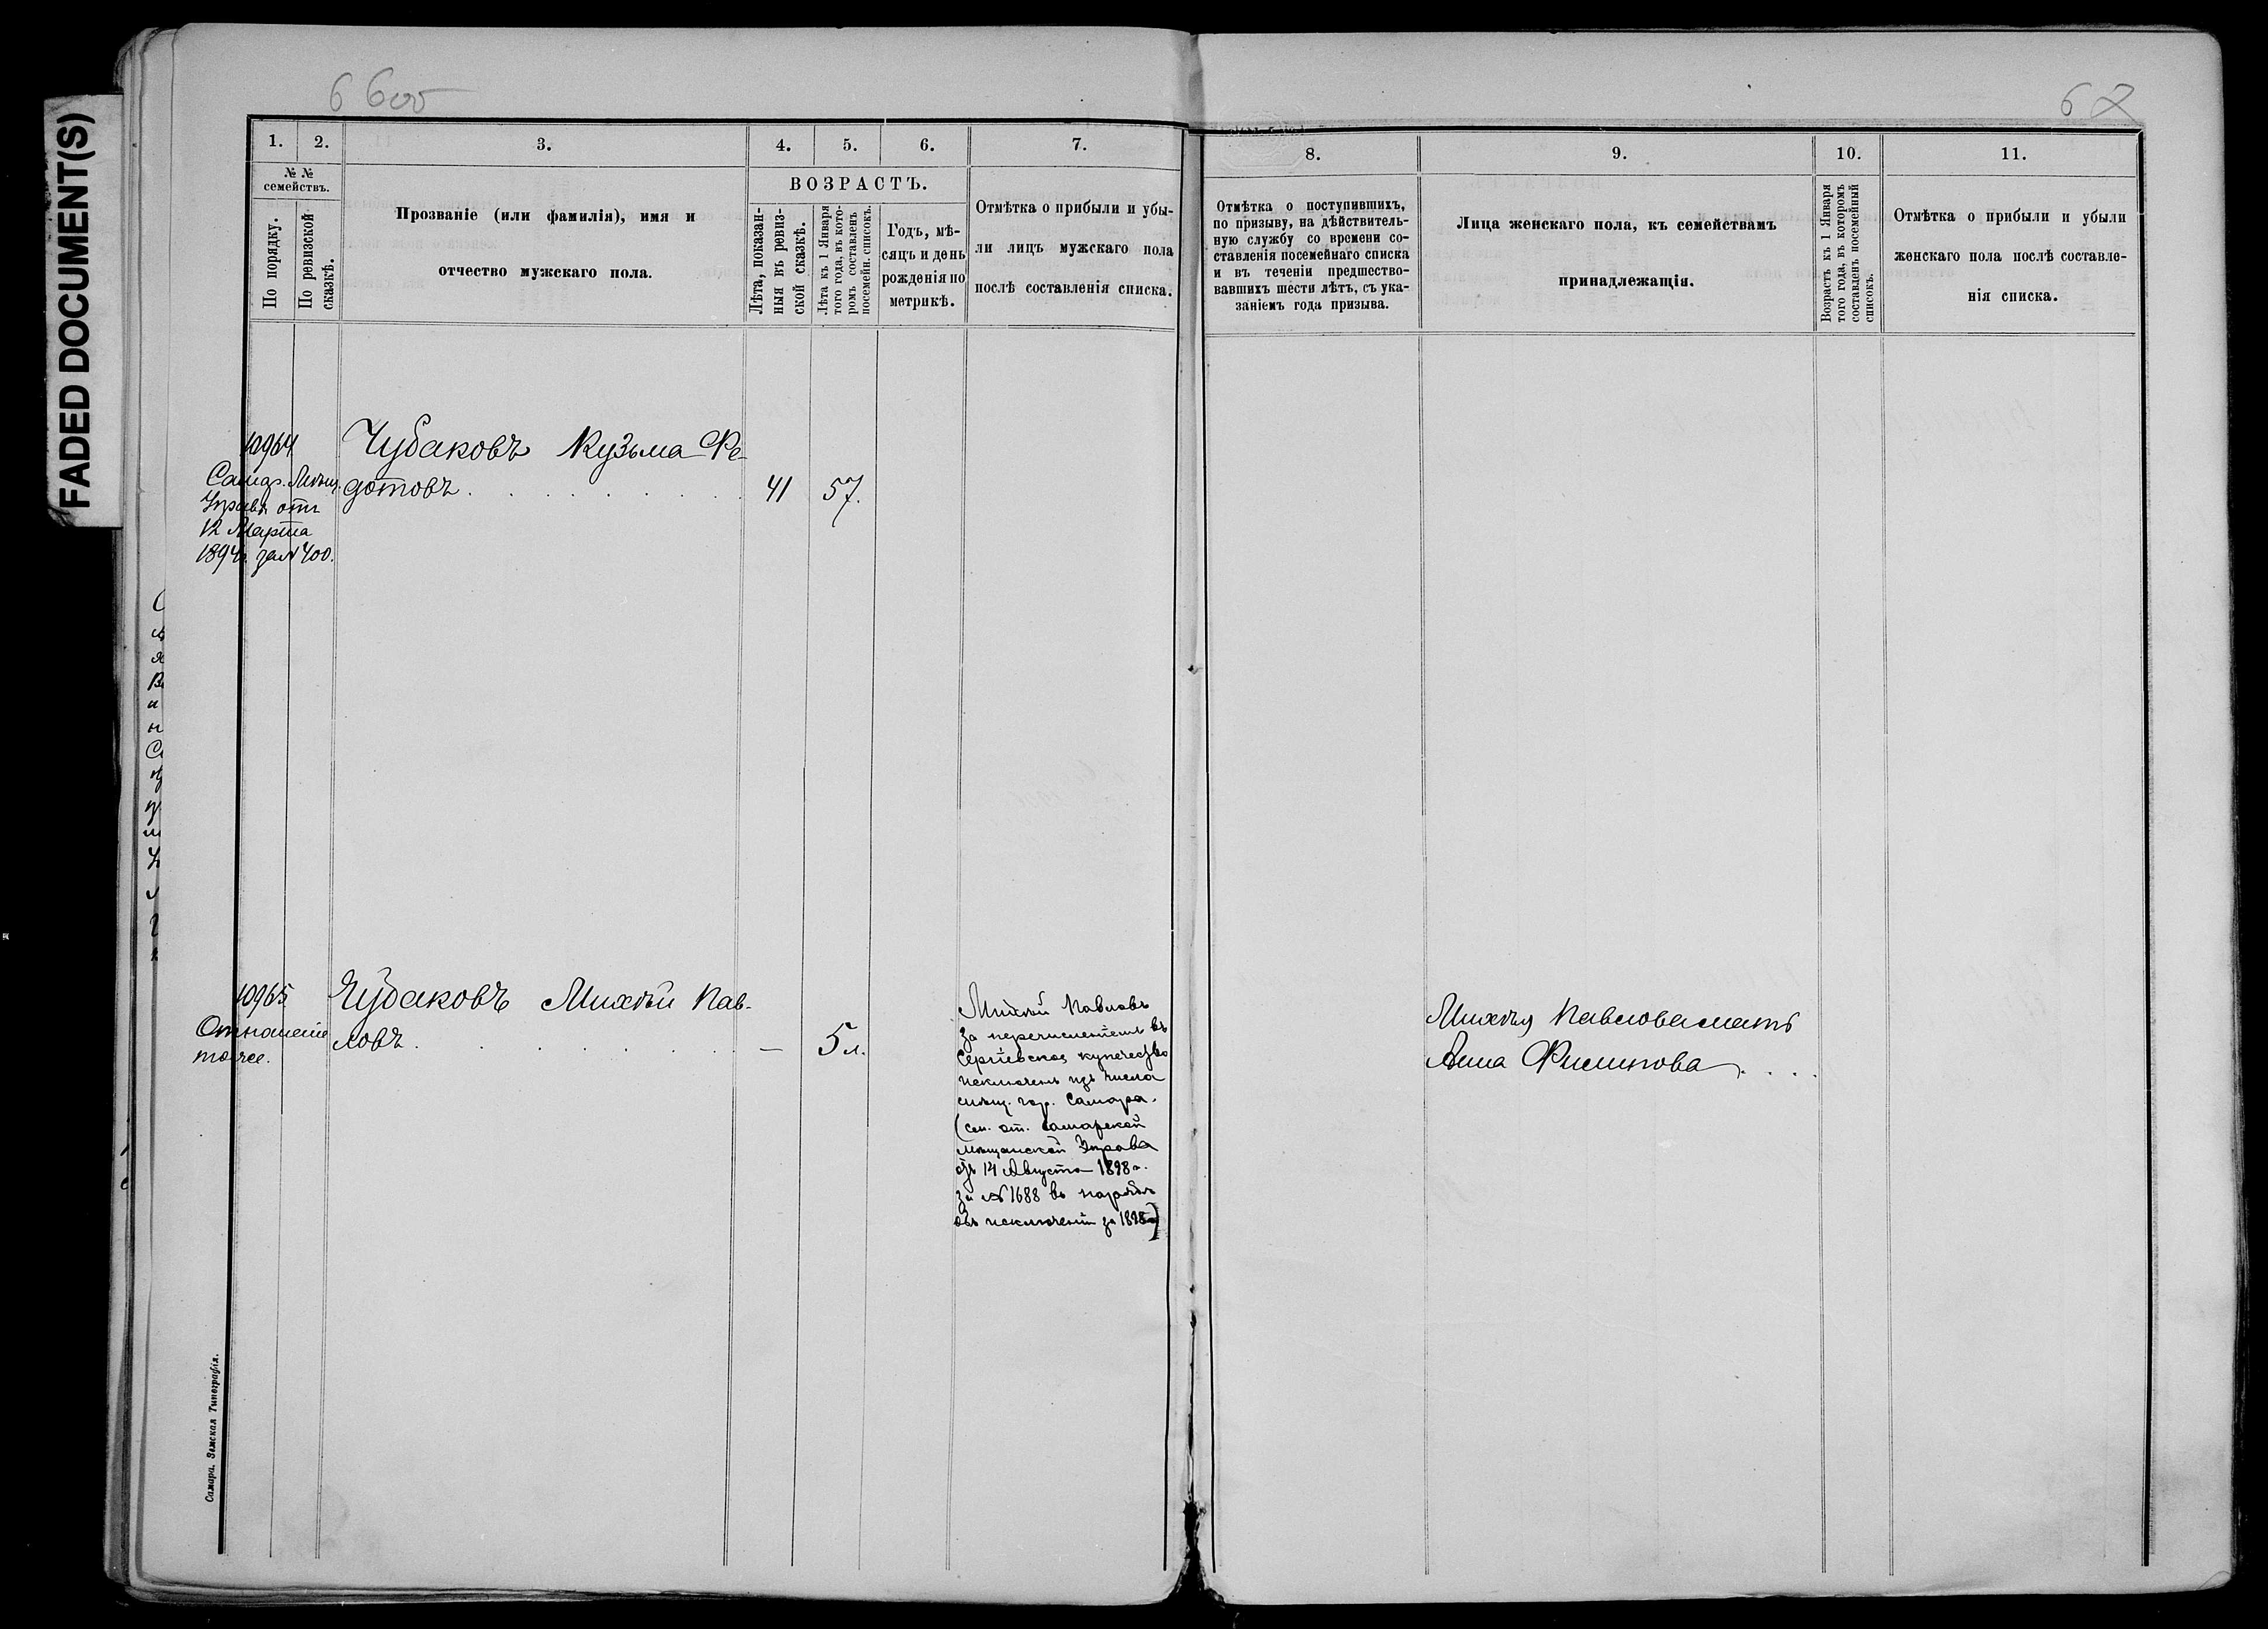 FADED DOCUMENT(S)
6 600
6
1.
2.
3.
4.
5.
6.
7.
8.
9.
10.
11.
№ №
семействъ.
По порядку.
По ревизской
сказкѣ.
Прозваніе (или фамилія), имя и
отчество мужскаго пола.
ВОЗРАСТЪ.
Лѣта, показан-
ныя въ ревиз-
ской сказкѣ.
Лѣта къ 1 Января
того года, въ кото-
ромъ составленъ
посемейн. списокъ.
Годъ, мѣ-
сяцъ и день
рожденія по
метрикѣ.
Отмѣтка о прибыли и убы-
ли лицъ мужскаго пола
послѣ составленія списка.
Отмѣтка о поступившихъ,
по призыву, на дѣйствитель-
ную службу со времени со-
ставленія посемейнаго списка
и въ теченіи предшество-
вавшихъ шести лѣтъ, съ ука-
заніемъ года призыва.
Лица женскаго пола, къ семействамъ
принадлежащія.
Возрастъ къ 1 Января
того года, въ которомъ
составленъ посемейный
списокъ.
Отмѣтка о прибыли и убыли
женскаго пола послѣ составле-
нія списка.
10964
Чубаковъ Кузьма Фе-
дотовъ . . . . . . . 41 57.
Самар. Мѣщ.
Управы отъ
12 Марта
1894г. за № 400.
10965
Чубаковъ Михѣй Пав-
ловъ . . . . . . . — 5 л.
Отношеніе
тоже.
Михѣй Павловъ
за перечисленіемъ въ
Сергіевское купечество
исключенъ изъ числа
мѣщ. гор. Самара.
(см. от. Самарской
Мѣщанской Управа
отъ 14 Августа 1898 г.
за № 1688 въ нарядѣ
объ исключеніи за 1898 г)
Михѣя Павлова мать
Анна Филипова . . . .
Самара. Земская Типографія.